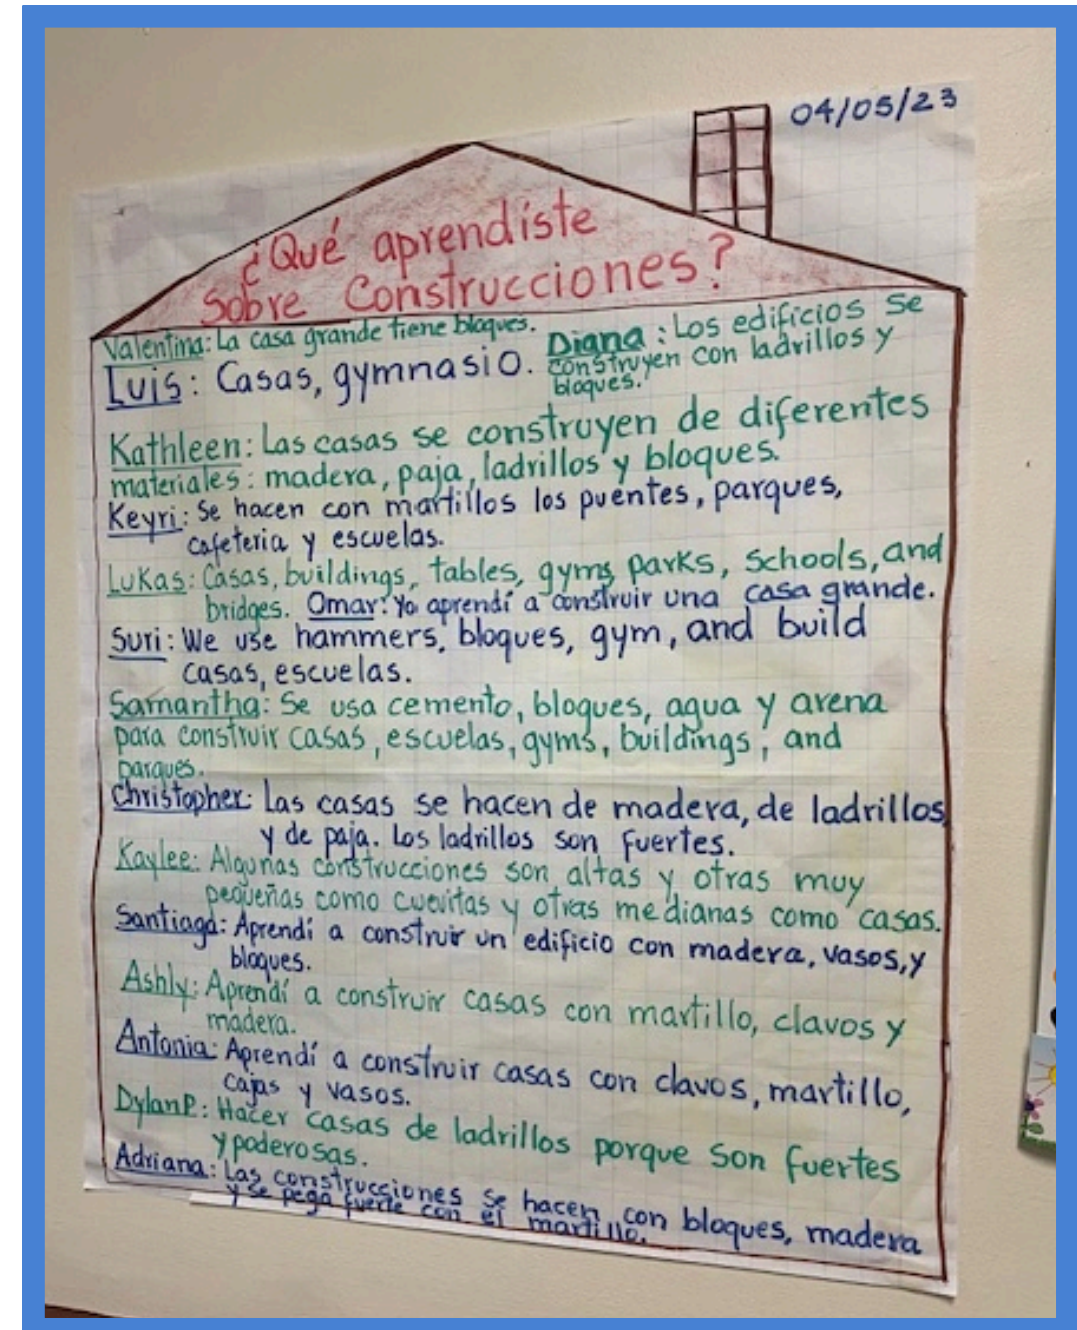 04/05/23
¿Qué aprendiste
Sobre Construcciones?
Valentina: La casa grande tiene bloques.
Luis: Casas, gymnasio.
Diana: Los edificios se
construyen con ladrillos y
bloques.
Kathleen: Las casas se construyen de diferentes
materiales: madera, paja, ladrillos y bloques.
Keyri: Se hacen con martillos los puentes, parques,
cafeteria y escuelas.
Lukas: Casas, buildings, tables, gyms, parks, schools, and
bridges. Omar: Yo aprendí a construir una casa grande.
Suri: We use hammers, bloques, gym, and build
casas, escuelas.
Samantha: Se usa cemento, bloques, agua y arena
para construir casas, escuelas, gyms, buildings, and
parques.
Christopher: Las casas se hacen de madera, de ladrillos,
y de paja. Los ladrillos son fuertes.
Kaylee: Algunas construcciones son altas y otras muy
pequeñas como cuevitas y otras medianas como casas.
Santiago: Aprendí a construir un edificio con madera, vasos, y
bloques.
Ashly: Aprendí a construir casas con martillo, clavos y
madera.
Antonia: Aprendí a construir casas con clavos, martillo,
cajas y vasos.
Dylan P.: Hacer casas de ladrillos porque son fuertes
y poderosas.
Adriana: Las construcciones se hacen con bloques, madera
y se pega fuerte con el martillo.